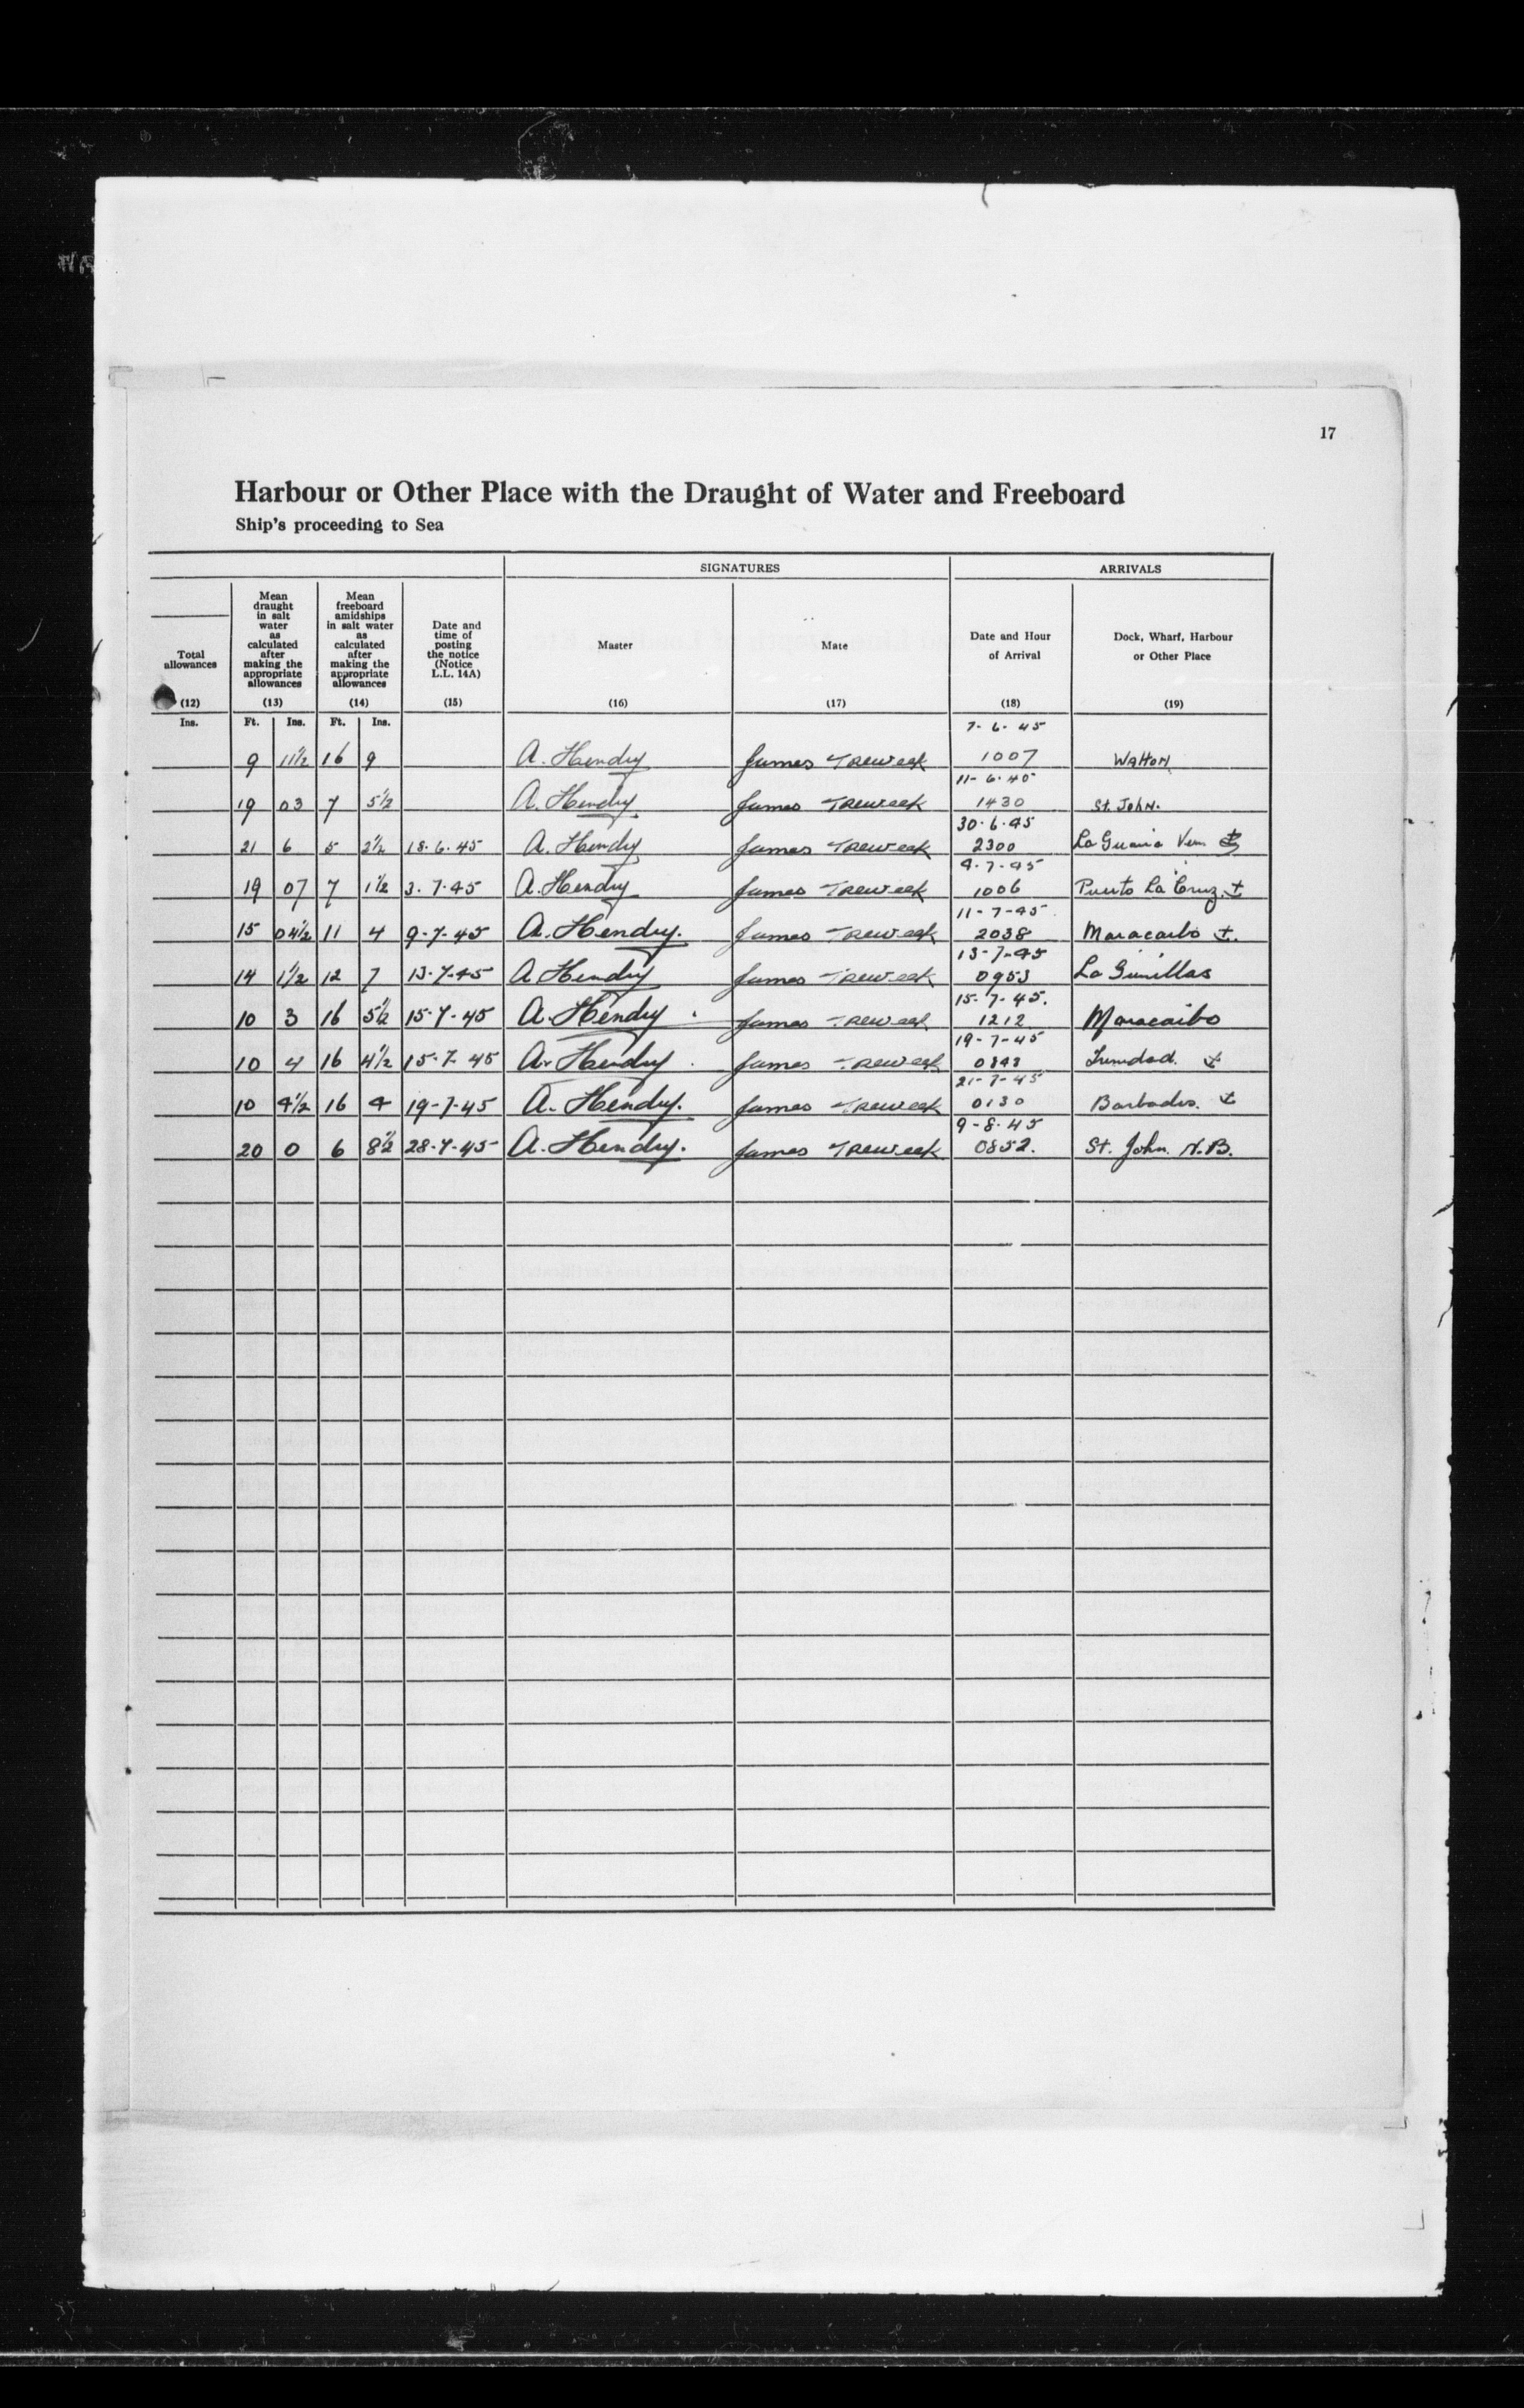 17
Harbour or Other Place with the Draught of Water and Freeboard
Ship's proceeding to Sea
SIGNATURES ARRIVALS
Total allowances (12) Mean draught in salt water as calculated after making the appropriate allowances (13) Mean freeboard amidships in salt water as calculated after making the appropriate allowances (14) Date and time of posting the notice (Notice L.L. 14A) (15) Master (16) Mate (17) Date and Hour of Arrival (18) Dock, Wharf, Harbour or Other Place (19)
Ins. Ft. Ins. Ft. Ins.
7-6-45
9 11½ 16 9 A. Hendry James Treweek 1007 Walton
11-6-45
19 03 7 5½ A. Hendry James Treweek 1430 St. John.
30·6·45
21 6 5 2½ 18·6·45 A. Hendry James Treweek 2300 La Guaira Ven.
4·7·45
19 07 7 1½ 3·7·45 A. Hendry James Treweek 1006 Puerto La Cruz.
11-7-45
15 04½ 11 4 9-7-45 A. Hendry. James Treweek 2038 Maracaibo
13-7-45
14 1½ 12 7 13-7-45 A Hendry James Treweek 0953 La Gunillas
15-7-45.
10 3 16 5½ 15·7-45 A. Hendry James Treweek 1212 Maracaibo
19-7-45
10 4 16 4½ 15·7·45 A. Hendry James Treweek Trinidad.
21-7-45
10 4½ 16 4 19-7-45 A. Hendry. James Treweek 0130 Barbados.
9-8-45
20 0 6 8½ 28·7-45 A. Hendry. James Treweek 0852. St. John. N.B.